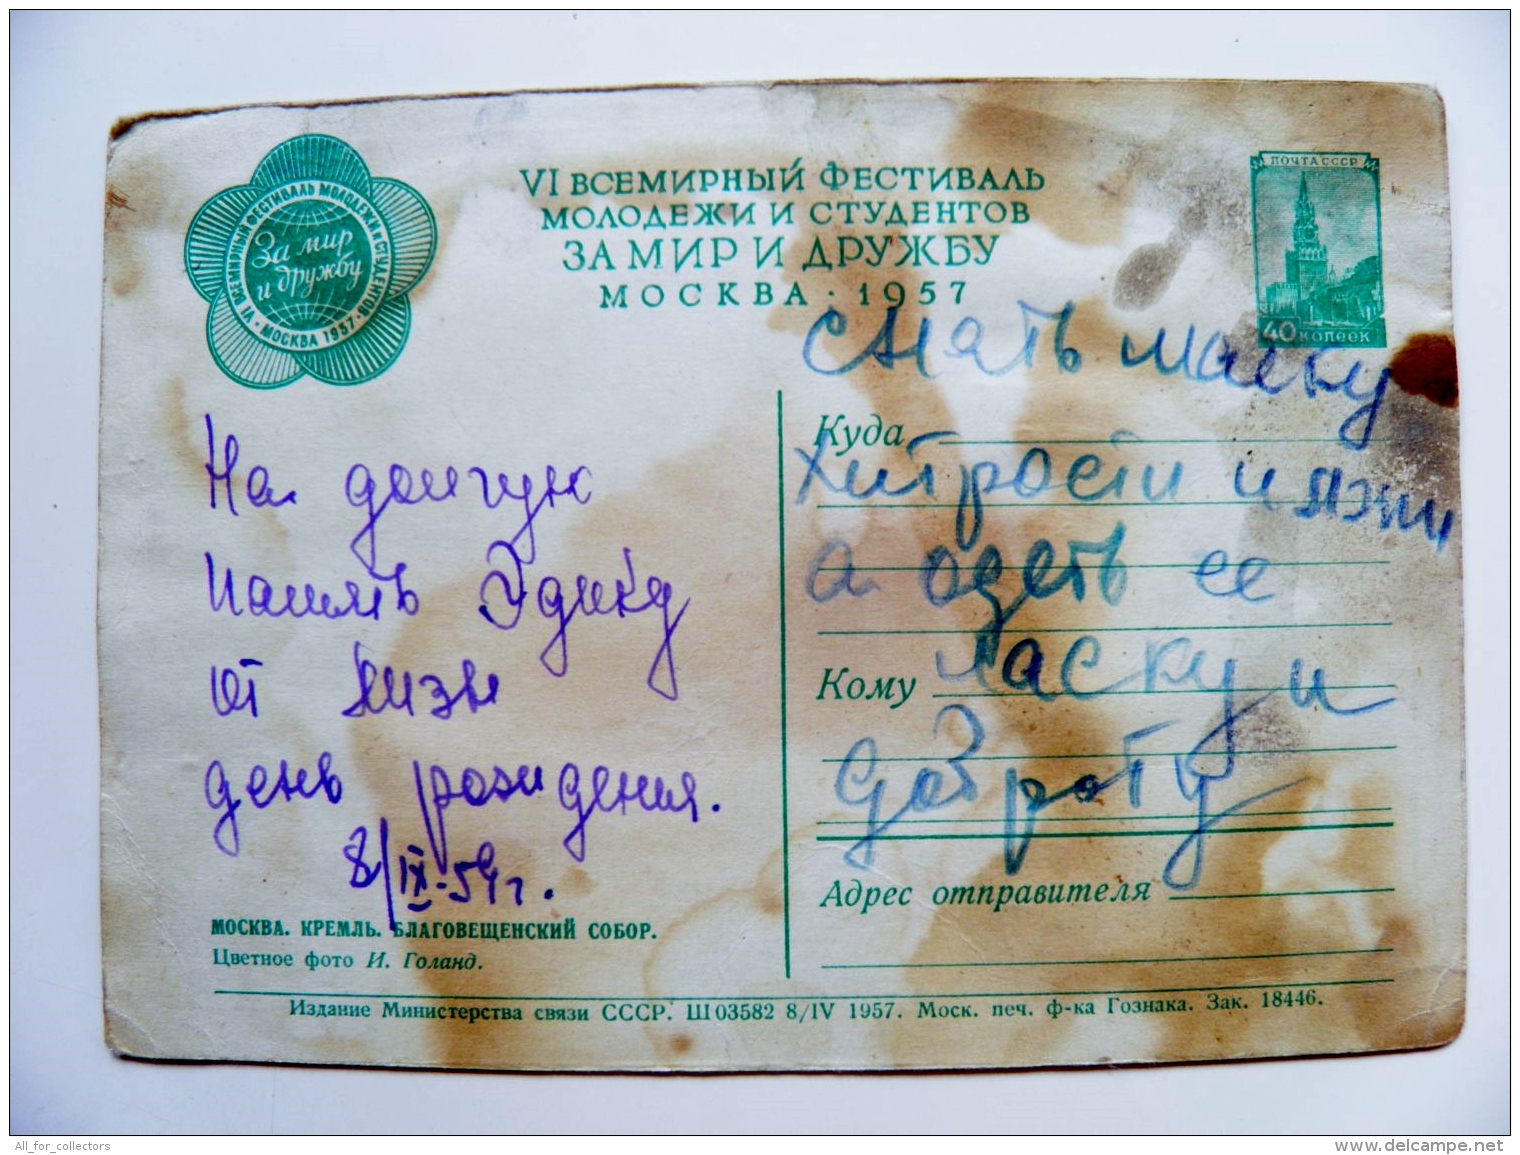 VI ВСЕМИРНЫЙ ФЕСТИВАЛЬ МОЛОДЕЖИ И СТУДЕНТОВ · МОСКВА 1957 ·
За мир
и дружбу
VI ВСЕМИРНЫЙ ФЕСТИВАЛЬ
МОЛОДЕЖИ И СТУДЕНТОВ
ЗА МИР И ДРУЖБУ
МОСКВА · 1957
ПОЧТА СССР
40 копеек
На долгую
память Эдику
от Лизы
день рождения.
8/IX-59 г.
МОСКВА. КРЕМЛЬ. БЛАГОВЕЩЕНСКИЙ СОБОР.
Цветное фото И. Голанд.
снять маску
Куда
хитрости и лжи
а одеть ее
Кому
ласку и
доброту
Адрес отправителя
Издание Министерства связи СССР. Ш 03582 8/IV 1957. Моск. печ. ф-ка Гознака. Зак. 18446.
All_for_collectors
www.delcampe.net